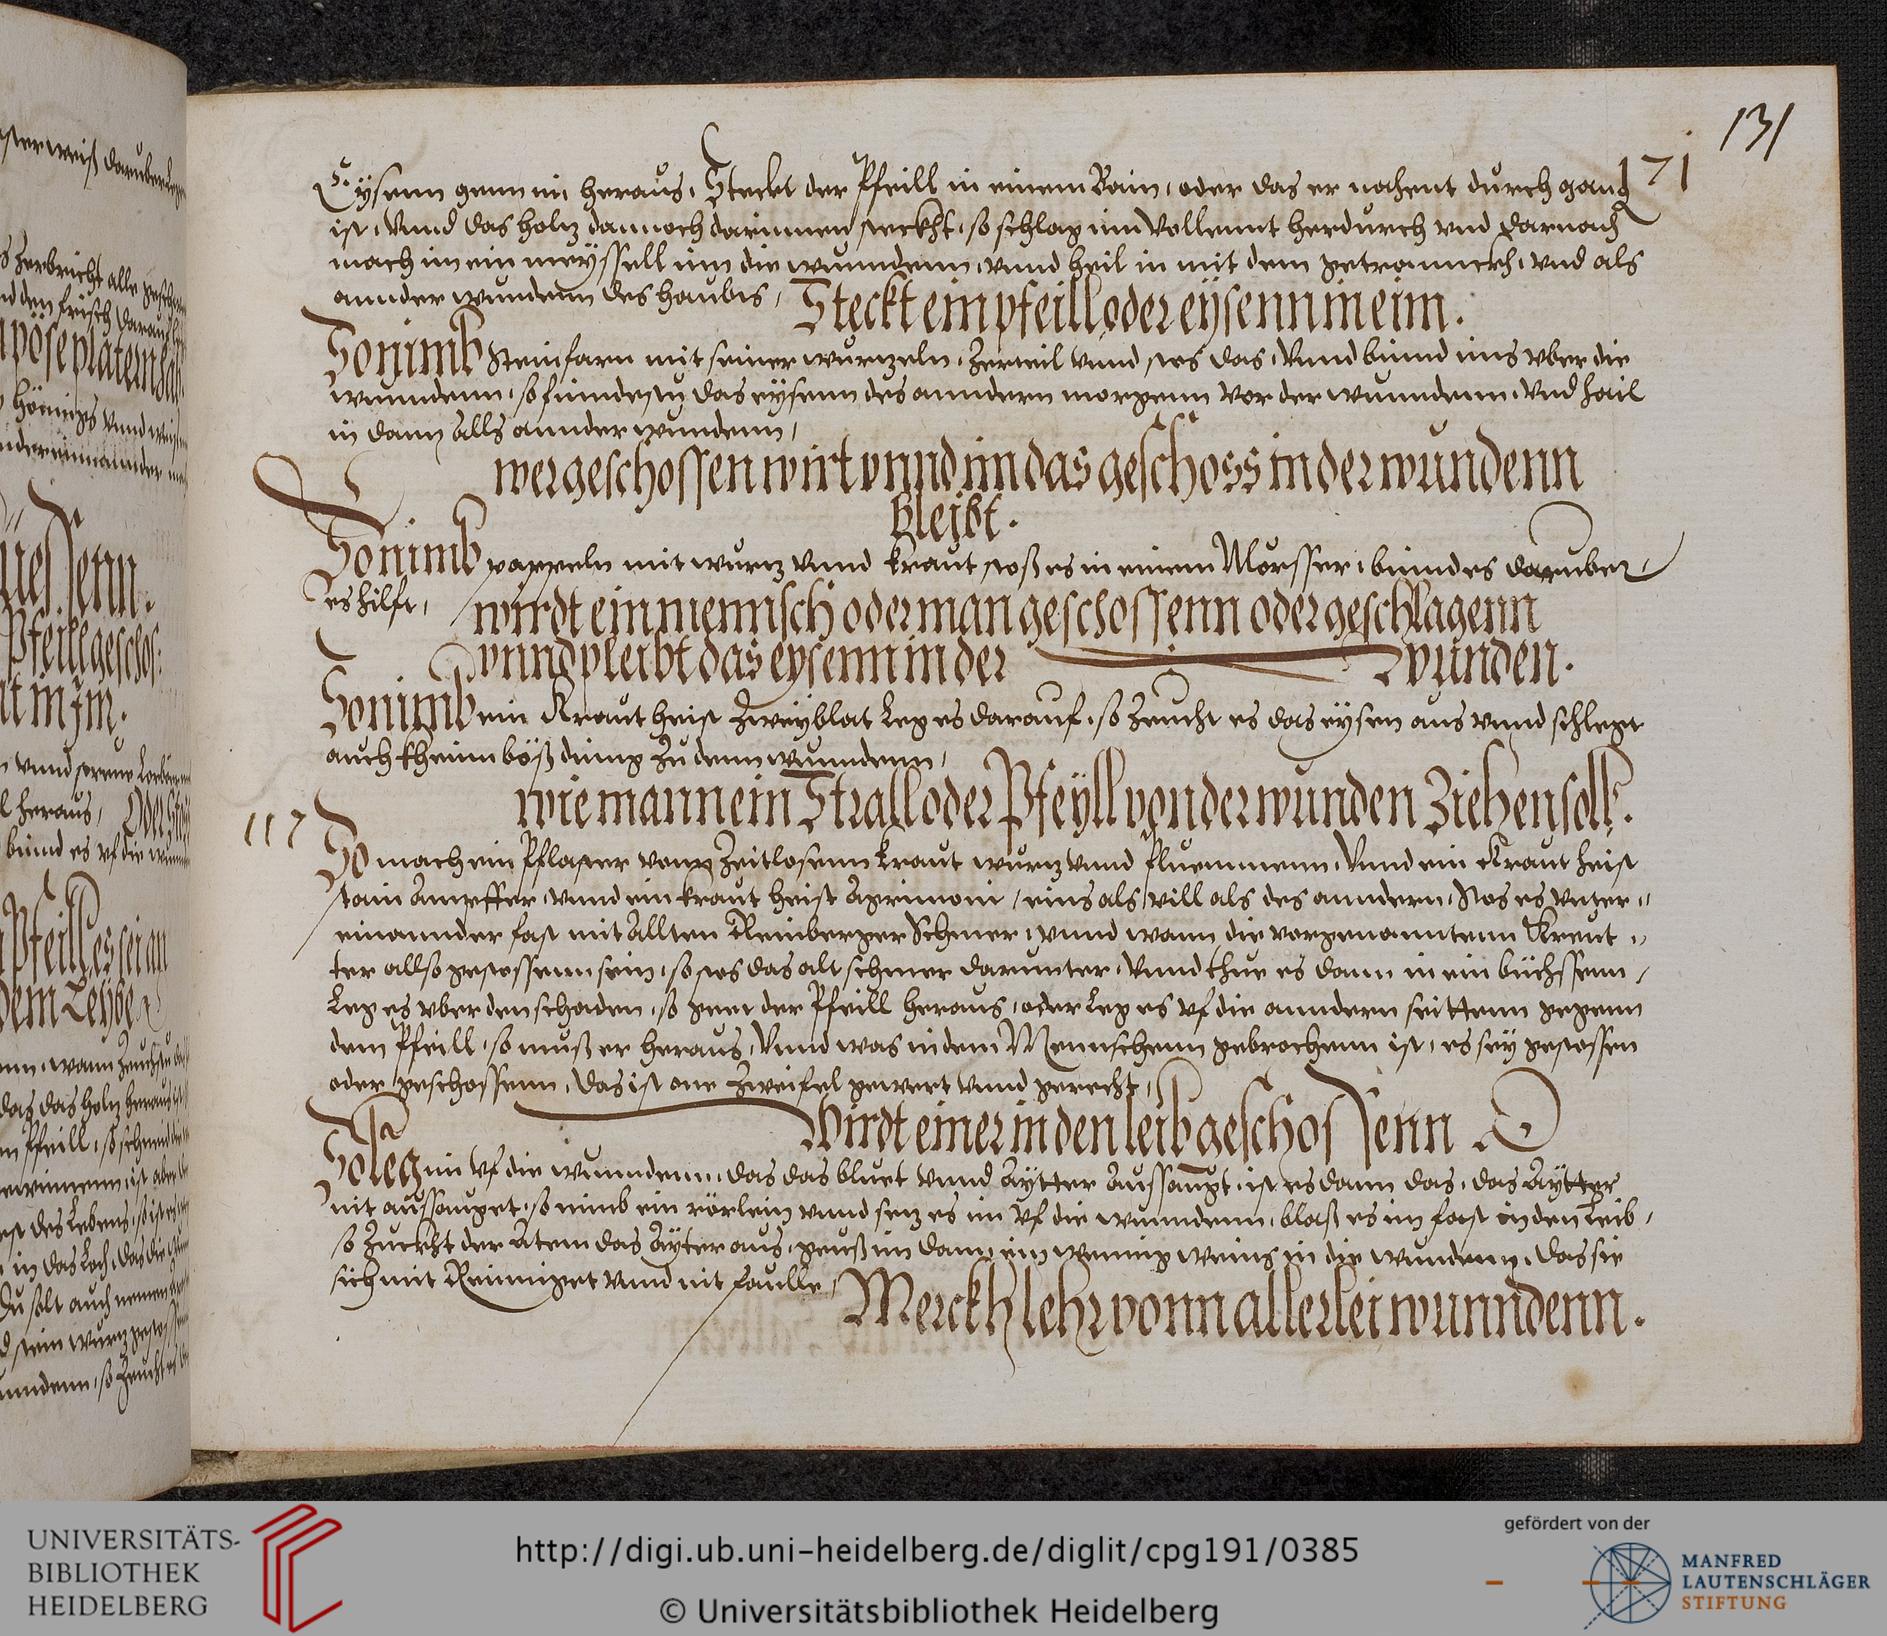 131
171
Eysenn genn im heraus, Steckt der Pfeill in einem Bain, oder das er nahent durch gang
ist, Vnnd das holtz dannoch darinnen steckht, so schlag im Vollennt herdurch vnd darnach
mach im ein meyssell inn die wunndenn, vnnd heil in mit dem getranneckh, vnd als
annder wundenn des haubts, Steckt ein pfeill oder eysenn in eim.
So nimb Steinfarn mit seiner wurtzeln, Zerteil vnnd stos das, Vnnd bünnd ims vber die
wunndenn, so finndestu das eysenn des anndern morgenn vor der wunndenn, vnd hail
in dann alls annder wundenn,
wer geschossen wirt vnnd im das geschoss in der wundenn
bleibt.
So nimb pappeln mit wurtz vnnd kraut stoß es in einem Mörsser, bünnd es daruber,
es hilft, wirdt ein mennsch oder man geschossenn oder geschlagenn
vnnd pleibt das eysenn in der wunden.
So nimb ein Kraut heist Zweyblat Leg es darauf, so Zeucht es das eysen aus vnnd schlegt
auch kheinn böß dinng Zu denn wunndenn,
wie mann ein Strall oder Pfeyll von der wunden Ziehen soll.
117
So mach ein Pflaster vonn Zeitlosenn kraut wurtz vnnd pluemmenn, Vnnd ein Kraut heist
stain Ampffer, vnnd ein kraut heist Agrimoni, eins als vill als des anndern, Stos es vnter
einannder fast mit Allten Reinberger Schmer, vnnd wann die vorgenanntenn Kreut
ter allso gestossenn sein, so stos das alt schmer darunter, Vnnd thue es dann in ein büchssenn,
Leg es vber den schaden, so geet der Pfeill heraus, oder Leg es vf die anndern seittenn gegenn
dem Pfeill, so muß er heraus, Vnnd was in dem Mennschenn gebrochenn ist, es sey gestossen
oder geschossenn, das ist one Zweifel gewert vnnd gerecht,
Wirdt einer in den leib geschossenn
So leg im vf die wunndenn, das das bluet vnnd Aytter Aussaugt, ist es dann das, das Aytter
nit aussauget, so nimb ein rörlein vnnd setz es im vf die wunndenn, blaß es im fast in den Leib,
so Zuckht der Atem das Ayter aus, geuß im dann ein wennig weins in die wundenn, das sie
sich mit Reinniget vnnd nit faulle, Merckh lehr vonn allerlei wunndenn.
UNIVERSITÄTS-
BIBLIOTHEK
HEIDELBERG
http://digi.ub.uni-heidelberg.de/diglit/cpg191/0385
© Universitätsbibliothek Heidelberg
gefördert von der
MANFRED
LAUTENSCHLÄGER
STIFTUNG